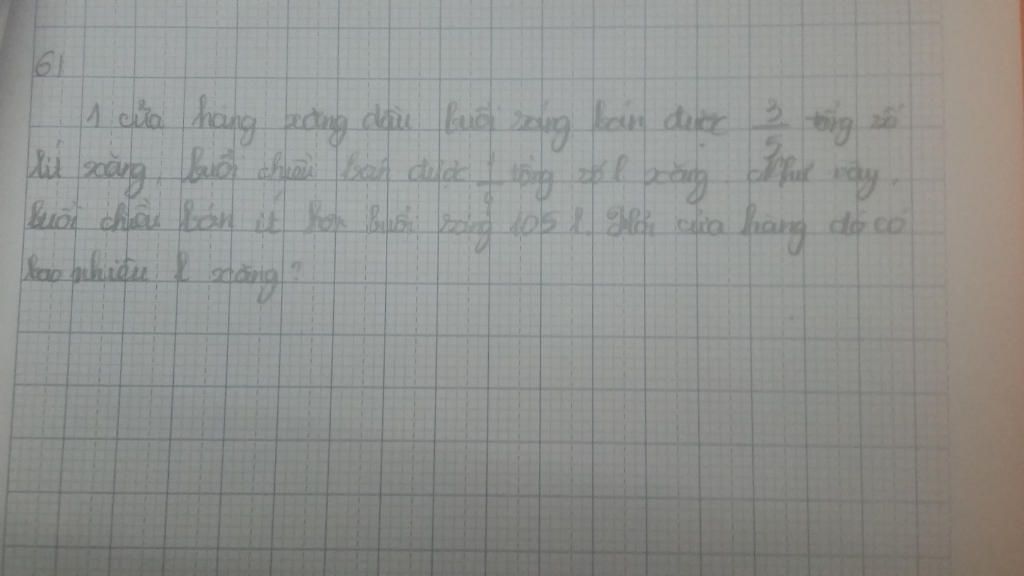 61
1 cửa hàng xăng dầu buổi sáng bán được 3/5 tổng số
lít xăng, buổi chiều bán được tổng số l xăng. Như vậy,
buổi chiều bán ít hơn buổi sáng 105 l. Hỏi cửa hàng đó có
bao nhiêu l xăng?